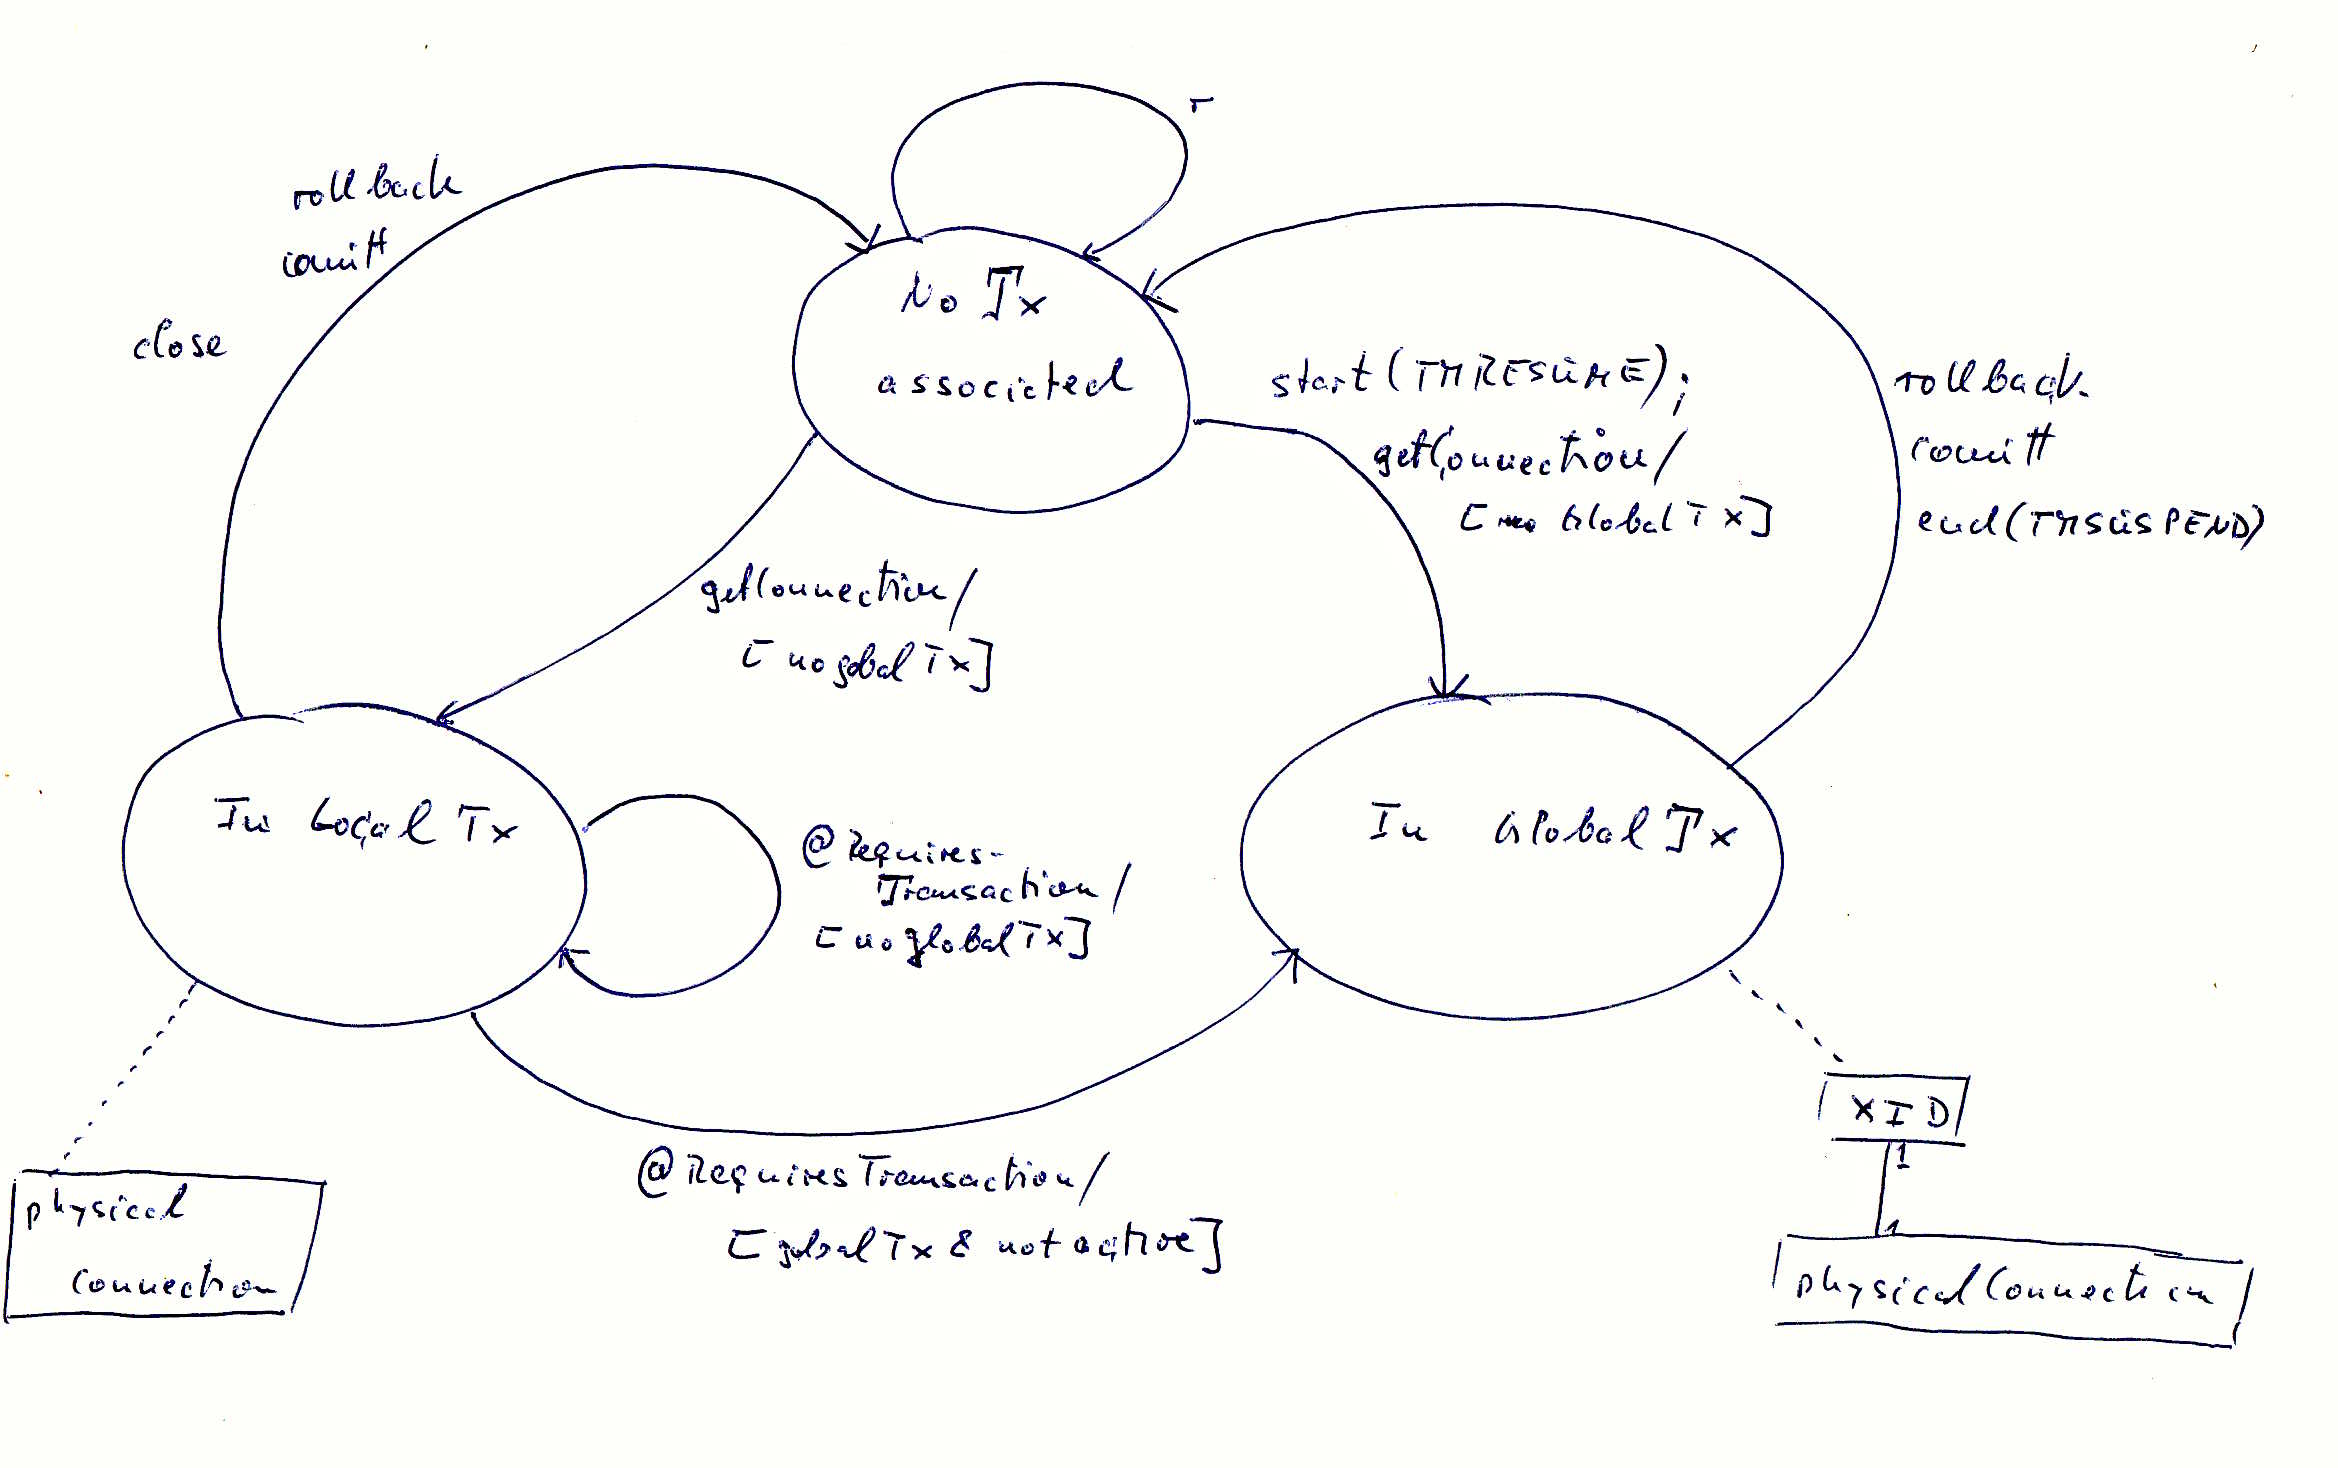 r
rollback
comitt
close
No Tx
associcted
start(TMRESUME);
getConnection/
[ Global Tx]
rollback
comitt
end(TMSUSPEND)
getConnection/
[no gobal Tx]
In Local Tx
@Requires-
Transaction/
[no global Tx]
In Global Tx
@RequiresTransaction/
[global Tx & not active]
XID
1
1
physical
connection
physicalConnection